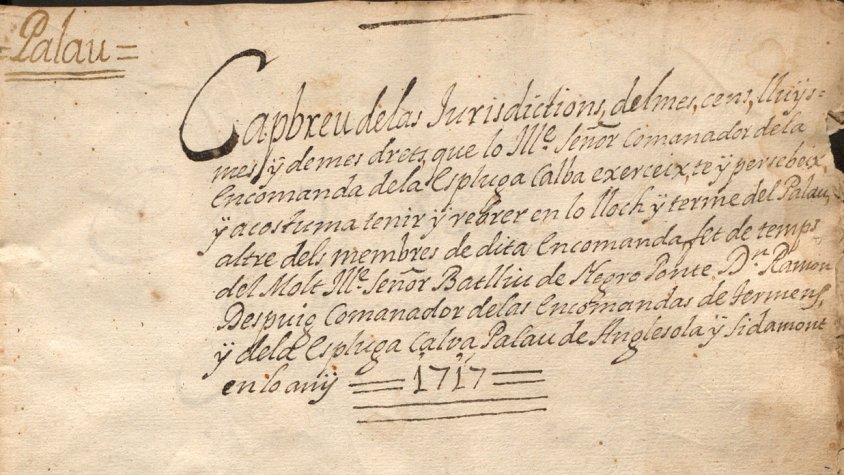 = Palau =
Capbreu de las Jurisdictions, delmes, cens, lluÿs=
mes, ÿ demes drets, que lo Ill.e Señor Comanador de la
Encomanda dela Espluga Calba exerceix, te ÿ persebeix,
ÿ acostuma tenir ÿ rebrer en lo lloch ÿ terme del Palau,
altre dels membres de dita Encomanda, fet de temps
del Molt Ill.e Señor Batlliu de Negro Ponte D.n Ramon
Despuig Comanador de las Encomandas de Termens,
ÿ dela Espluga Calva Palau de Anglesola ÿ Sidamont
en lo anÿ == 1717 ==